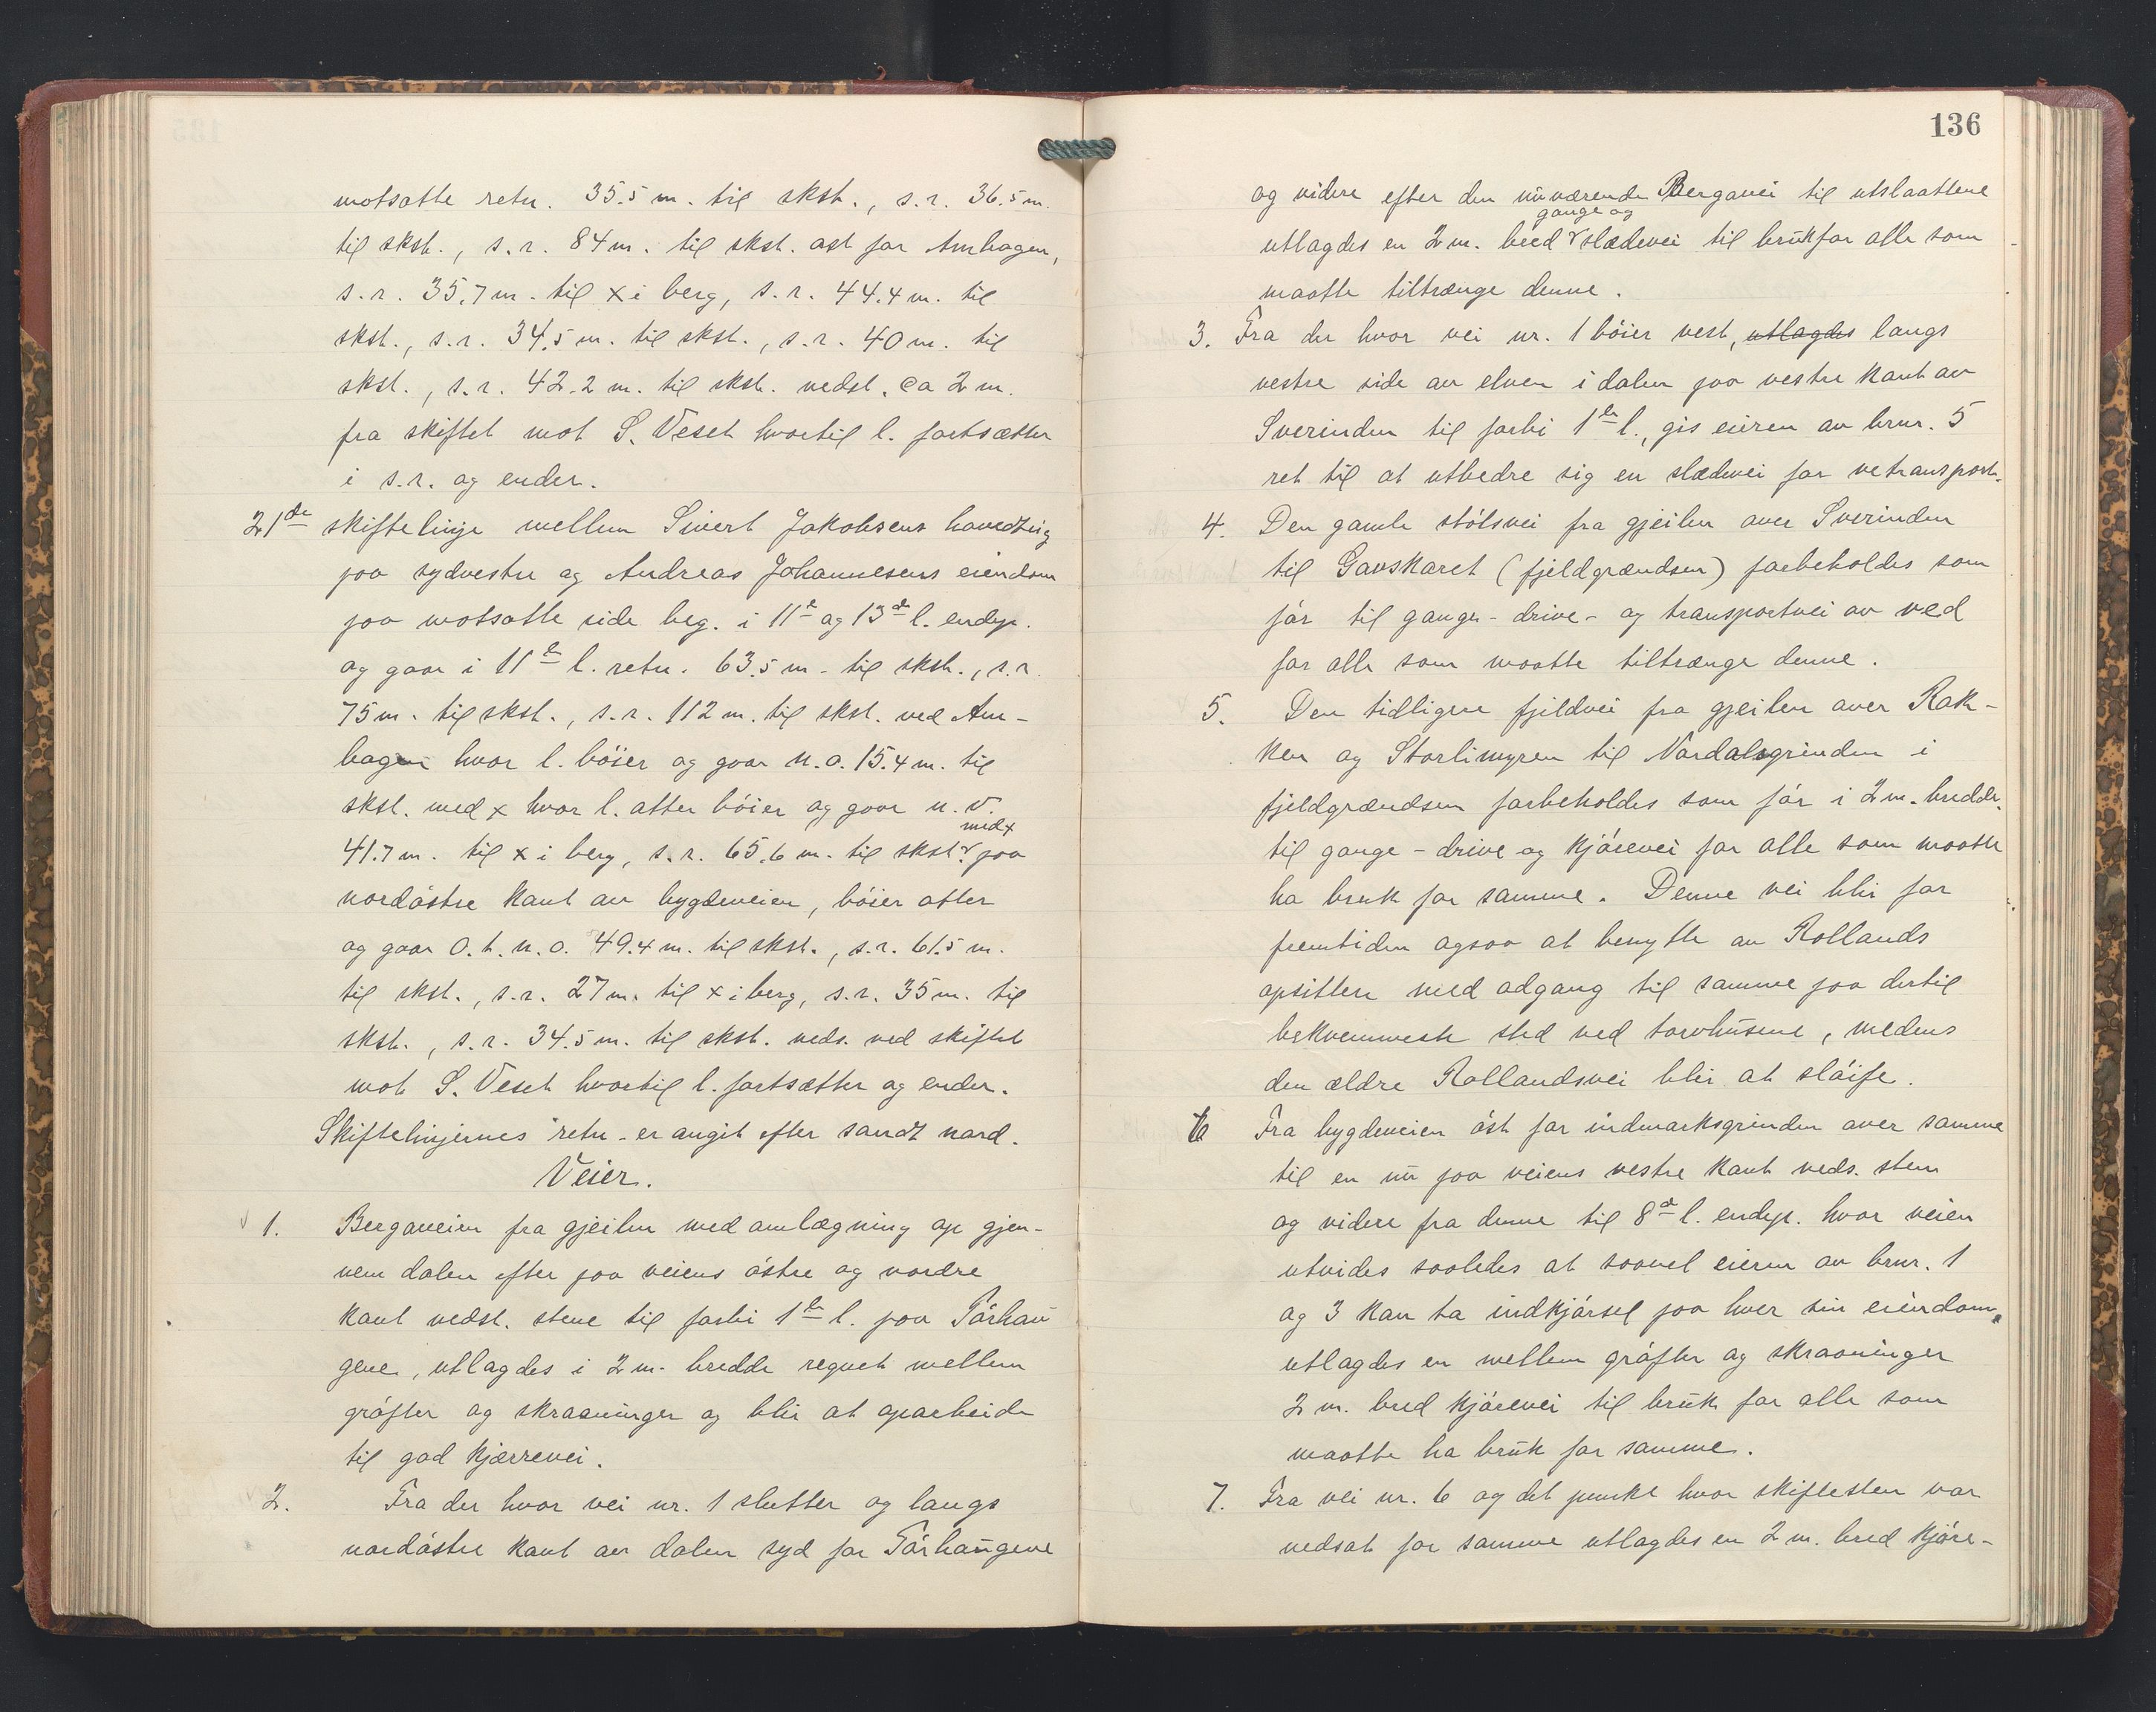 motsatte retn. 35.5 m. til skst., s.r. 36.5 m.
til skst., s.r. 84 m. til skst. øst for Ambagen,
s.r. 35.7 m. til x i berg, s.r. 44.4 m. til
skst., s.r. 34.5 m. til skst., s.r. 40 m. til
skst., s.r. 42.2 m. til skst. nedst. ca 2 m.
fra skiftet mot S. Veset hvortil l. fortsætter
i s.r. og ender.
21de skiftelinje mellem Sivert Jakobsens hovedteig
paa sydvestre og Andreas Johannesens eiendom
paa motsatte side beg. i 11te og 13de l. endep.
og gaar i 11te l. retn. 63.5 m. til skst., s.r.
75 m. til skst., s.r. 112 m. til skst. ved Am-
bagen hvor l. bøier og gaar n.o. 15.4 m. til
skst. med x hvor l. atter bøier og gaar n.v.
41.7 m. til x i berg, s.r. 65.6 m. til skst. med x paa
nordøstre kant av bygdeveien, bøier atter
og gaar o.t.n.o. 49.4 m. til skst., s.r. 61.5 m.
til skst., s.r. 27 m. til x i berg, s.r. 35 m. til
skst., s.r. 34.5 m. til skst. neds. ved skiftet
mot S. Veset hvortil l. fortsætter og ender.
Skiftelinjernes retn. er angit efter sandt nord.
Veier.
1. Bergaveien fra gjeilen med omlægning op gjen-
nem dalen efter paa veiens østre og nordre
kant nedst. stene til forbi 1ste l. paa Tørhau
gene, utlagdes i 2 m. bredde regnet mellem
grøfter og skraaninger og blir at oparbeide
til god kjærrevei.
2. Fra der hvor vei nr. 1 slutter og langs
nordøstre kant av dalen syd for Tørhaugene
136
og videre efter den nuværende Bergavei til utslaattene
utlagdes en 2 m. bred gange og slædevei til bruk for alle som
maatte tiltrænge denne.
3. Fra der hvor vei nr. 1 bøier vest, utlagdes langs
vestre side av elven i dalen paa vestre kant av
Sverinden til forbi 1ste l., gis eieren av brnr. 5
ret til at utbedre sig en slædevei for vetransport.
4. Den gamle stølsvei fra gjeilen over Sverinden
til Gavskaret (fjeldgrændsen) forbeholdes som
før til gange- drive- og transportvei av ved
for alle som maatte tiltrænge denne.
5. Den tidligere fjeldvei fra gjeilen over Rak-
ken og Storlimyren til Nordalsgrinden i
fjeldgrændsen forbeholdes som før i 2 m. bredde
til gange- drive og kjørevei for alle som maatte
ha bruk for samme. Denne vei blir for
fremtiden ogsaa at benytte av Rollands
opsittere med adgang til samme paa dertil
bekvemmeste sted ved torvhusene, medens
den ældre Rollandsvei blir at sløife.
6 Fra bygdeveien øst for indmarksgrinden over samme
til en nu paa veiens vestre kant neds. sten
og videre fra denne til 8de l. endep. hvor veien
utvides saaledes at saavel eieren av brnr. 1
og 3 kan ta indkjørsel paa hver sin eiendom,
utlagdes en mellem grøfter og skraaninger
2 m. bred kjørevei til bruk for alle som
maatte ha bruk for samme.
7. Fra vei nr. 6 og det punkt hvor skiftesten var
nedsat for samme utlagdes en 2 m. bred kjøre-